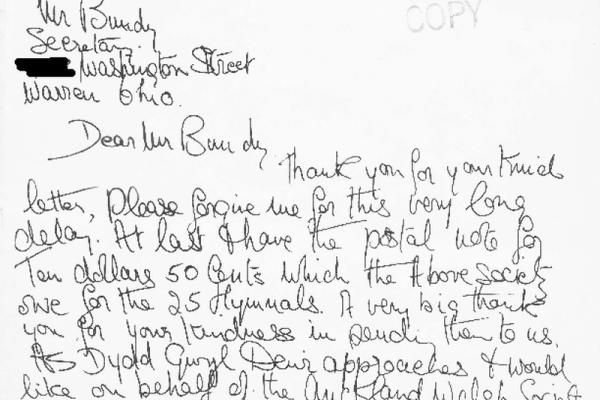 COPY
Mr Bundy
Secretary.
Washington Street
Warren Ohio.
Dear Mr Bundy
Thank you for your kind
letter, please forgive me for this very long
delay. At last I have the postal note for
Ten dollars 50 Cents which the Above society
owe for the 25 Hymnals. A very big thank
you for your kindness in sending them to us.
As Dydd Gwyl Dewi approaches I would
like on behalf of the Auckland Welsh Society